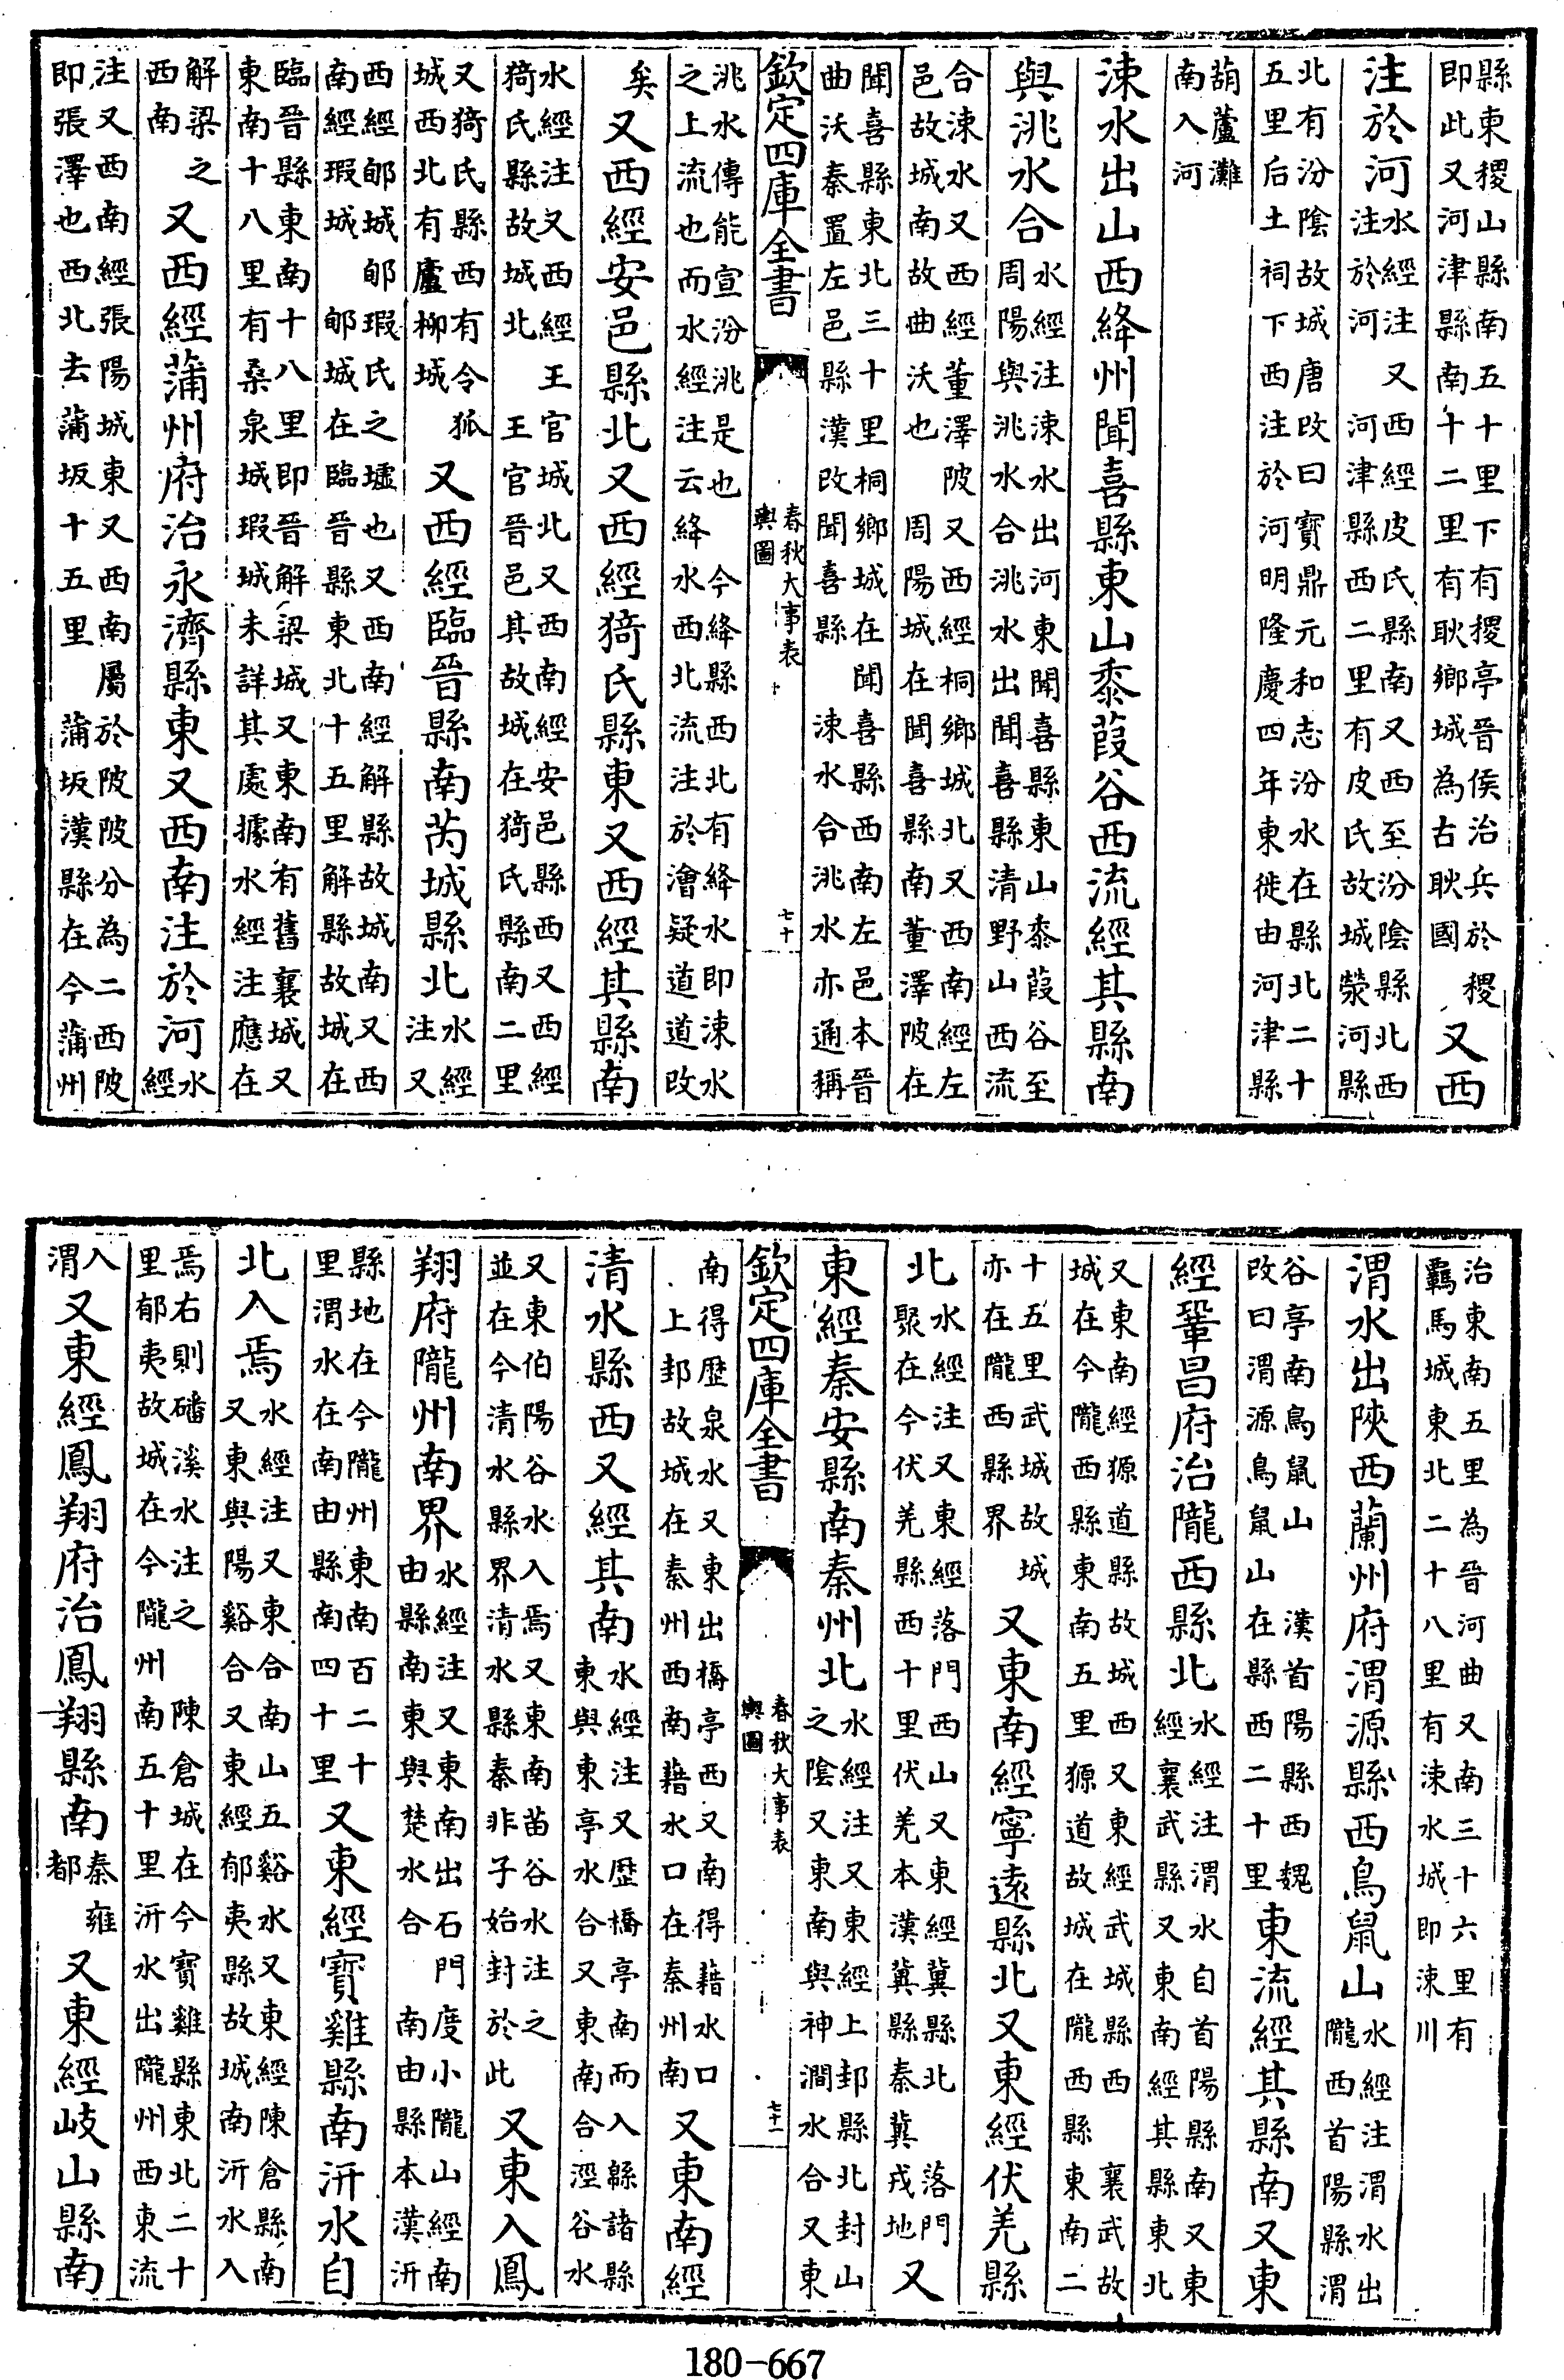 縣東稷山縣南五十里下有稷亭晉侯治兵於稷
即此又河津縣南十二里有耿鄉城為古耿國
又西
注於河
水經注又西經皮氏縣南又西至汾陰縣北西
注於河 河津縣西二里有皮氏故城滎河縣
北有汾陰故城唐改曰寳鼎元和志汾水在縣北二十
五里后土祠下西注於河明隆慶四年東徙由河津縣
葫蘆灘
南入河
涑水出山西絳州聞喜縣東山黍葭谷西流經其縣南
與洮水合
水經注涑水出河東聞喜縣東山黍葭谷至
周陽與洮水合洮水出聞喜縣清野山西流
合涑水又西經董澤陂又西經桐鄉城北又西南經左
邑故城南故曲沃也 周陽城在聞喜縣南董澤陂在
聞喜縣東北三十里桐鄉城在聞喜縣西南左邑本晉
曲沃秦置左邑縣漢改聞喜縣 涑水合洮水亦通稱
欽定四庫全書
春秋大事表
輿圖
七十
洮水傳能宣汾洮是也 今絳縣西北有絳水即涑水
之上流也而水經注云絳水西北流注於澮疑道道改
矣
又西經安邑縣北又西經猗氏縣東又西經其縣南
水經注又西經王官城北又西南經安邑縣西又西經
猗氏縣故城北 王官晉邑其故城在猗氏縣南二里
又猗氏縣西有令狐
城西北有廬柳城
又西經臨晉縣南芮城縣北
水經
注又
西經郇城郇瑕氏之墟也又西南經解縣故城南又西
南經瑕城 郇城在臨晉縣東北十五里解縣故城在
臨晉縣東南十八里即晉解梁城又東南有舊襄城又
東南十八里有桑泉城瑕城未詳其處據水經注應在
解梁之
西南
又西經蒲州府治永濟縣東又西南注於河
水
經
注又西南經張陽城東又西南屬於陂陂分為二西陂
即張澤也西北去蒲坂十五里 蒲坂漢縣在今蒲州
治東南五里為晉河曲又南三十六里有
羈馬城東北二十八里有涑水城即涑川
渭水出陝西蘭州府渭源縣西鳥鼠山
水經注渭水出
隴西首陽縣渭
谷亭南鳥鼠山 漢首陽縣西魏
改曰渭源鳥鼠山在縣西二十里
東流經其縣南又東
經鞏昌府治隴西縣北
水經注渭水自首陽縣南又東
經襄武縣又東南經其縣東北
又東南經獂道縣故城西又東經武城縣西 襄武故
城在今隴西縣東南五里獂道故城在隴西縣東南二
十五里武城故城
亦在隴西縣界
又東南經寧遠縣北又東經伏羌縣
北
水經注又東經落門西山又東經冀縣北 落門
聚在今伏羌縣西十里伏羌本漢冀縣秦冀戎地
又
東經秦安縣南秦州北
水經注又東經上邽縣北封山
之陰又東南與神澗水合又東
欽定四庫全書
春秋大事表
輿圖
七十一
南得歷泉水又東出橋亭西又南得藉水口
上邽故城在秦州西南藉水口在秦州南
又東南經
清水縣西又經其南
水經注又歷橋亭南而入緜諸縣
東與東亭水合又東南合涇谷水
又東伯陽谷水入焉又東南苗谷水注之
並在今清水縣界清水縣秦非子始封於此
又東入鳳
翔府隴州南界
水經注又東南出石門度小隴山經南
由縣南東與楚水合 南由縣本漢汧
縣地在今隴州東南百二十
里渭水在南由縣南四十里
又東經寳雞縣南汧水自
北入焉
水經注又東合南山五谿水又東經陳倉縣南
又東與陽谿合又東經郁夷縣故城南汧水入
焉右則磻溪水注之 陳倉城在今寳雞縣東北二十
里郁夷故城在今隴州南五十里汧水出隴州西東流
入
渭
又東經鳳翔府治鳳翔縣南
秦雍
都
又東經岐山縣南
180-667